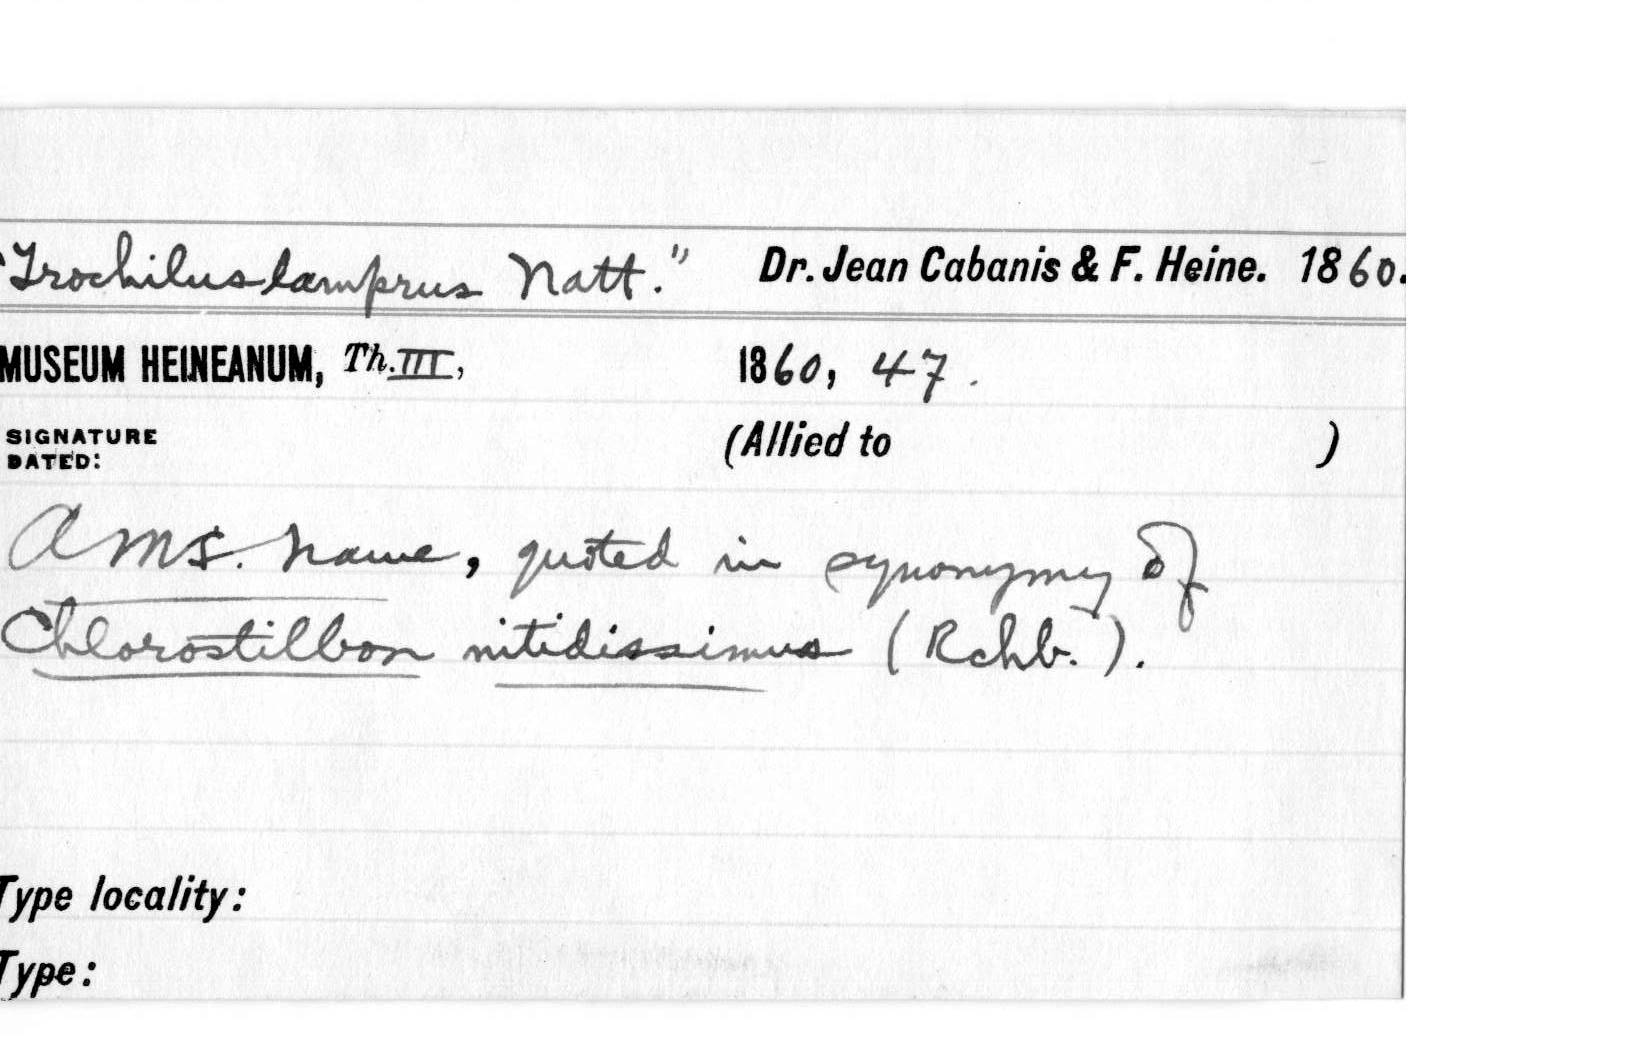 "Trochilus lamprus Natt." Dr. Jean Cabanis & F. Heine. 1860.
MUSEUM HEINEANUM, Th. III, 1860, 47.
SIGNATURE
DATED: (Allied to )
A MS. name, quoted in synonymy of
Chlorostilbon nitidissimus (Rchb.).
Type locality:
Type: